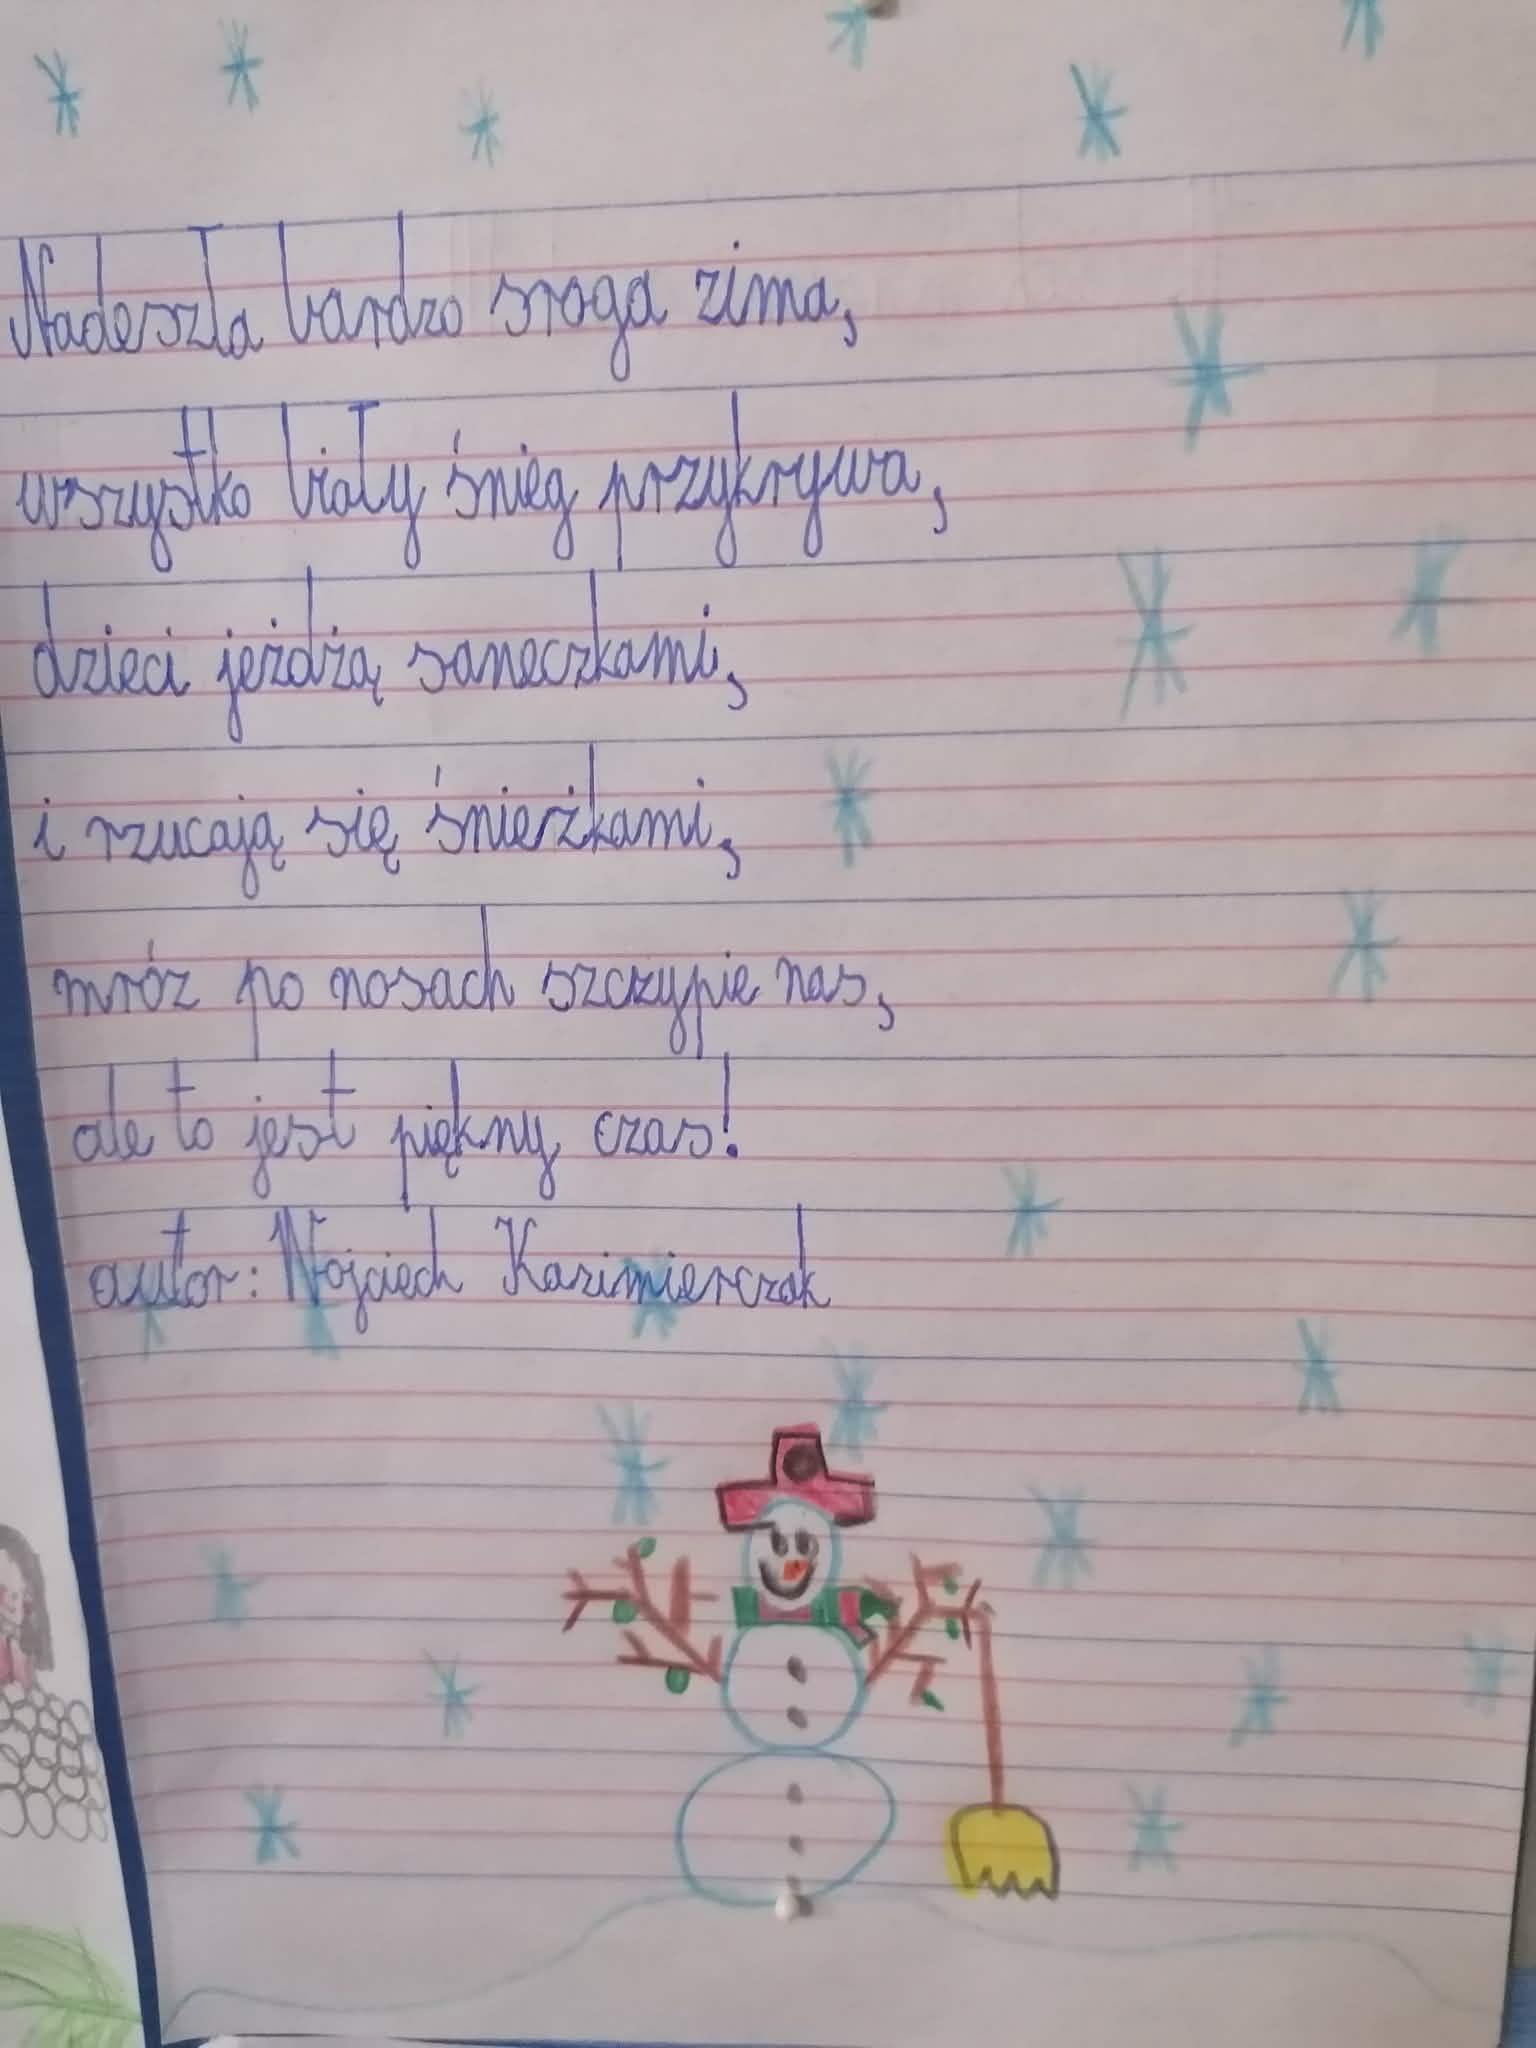 Nadeszła bardzo sroga zima,
wszystko biały śnieg przykrywa,
dzieci jeżdżą saneczkami,
i rzucają się śnieżkami,
mróz po nosach szczypie nas,
ale to jest piękny czas!
autor: Wojciech Kazimierczak